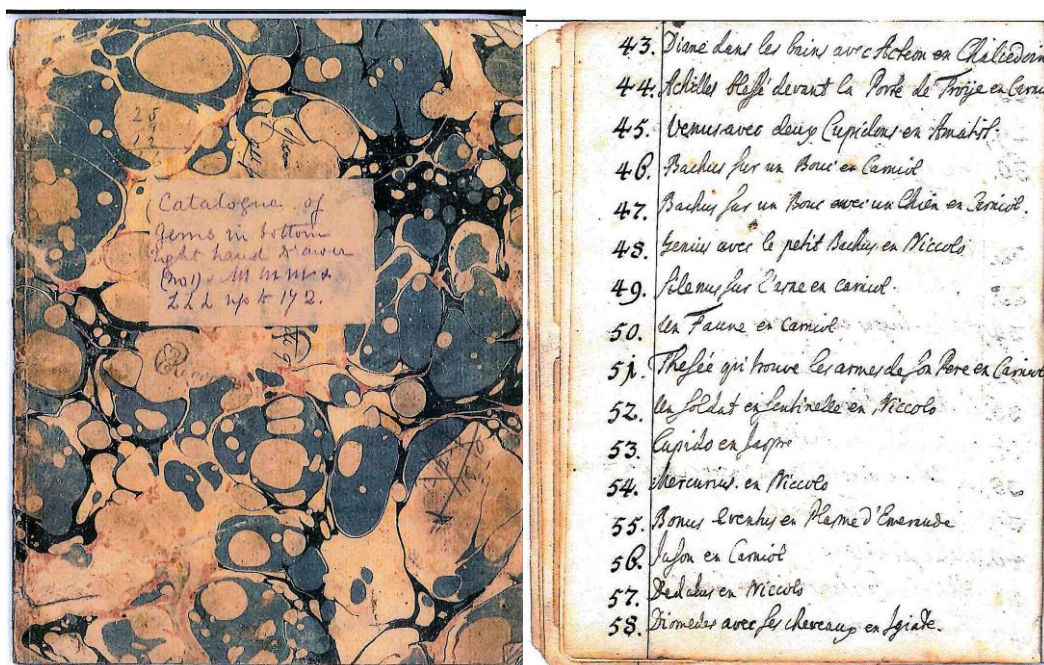 Catalogue of
Gems in bottom
right hand Drawer
(no 1) - M m m &
LLL up to 172.
43. Diane dans les bains avec Acteon en Chalcedoin
44. Achilles blessé devant la Porte de Troije en Carni
45. Venus avec deux Cupidons en Amatist.
46. Bachus sur un Bouc en Carniol
47. Bachus sur un Bouc avec un Chien en Carniol.
48. Genius avec le petit Bachus en Niccolo
49. Silenus sur l'asne en carniol.
50. Un Faune en Carniol
51. Thesée qui trouve les armes de son Pere en Carniol
52. Un Soldat en Sentinelle en Niccolo
53. Cupido en Jaspre
54. Mercurius en Niccolo
55. Bonus Eventus en Plasme d'Emeraude
56. Jason en Carniol
57. Dedalus en Niccolo
58. Diomedes avec ses chevaux en Agade.